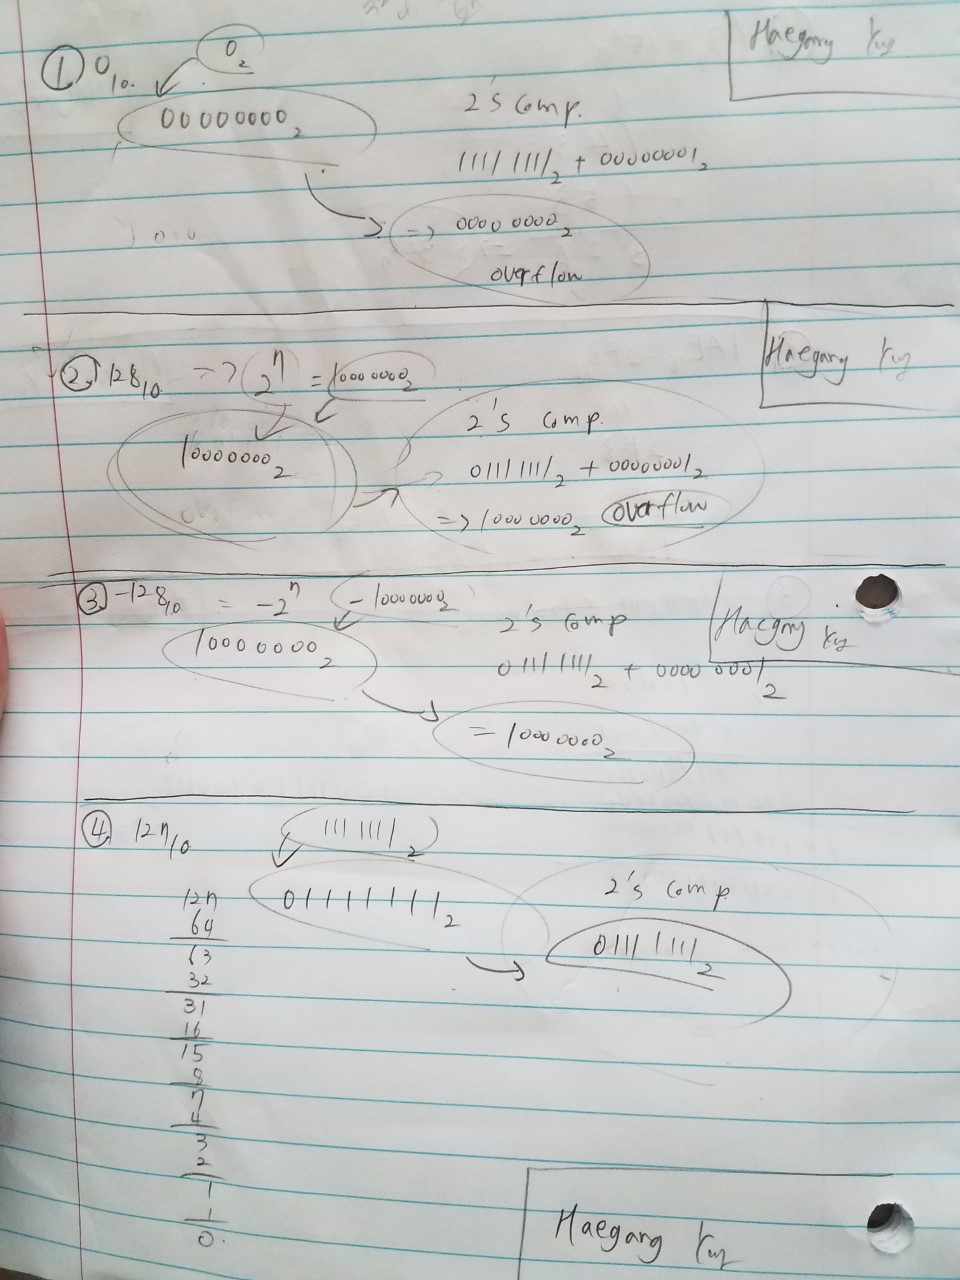 Haegang
① 0₁₀. 0₂
00000000₂
2's comp.
1111 1111₂ + 00000001₂
=> 0000 0000₂
overflow
Haegang
② 128₁₀ => 2ⁿ = 10000000₂
10000000₂
2's comp.
01111111₂ + 00000001₂
=> 10000000₂ overflow
③ -128₁₀ = -2ⁿ -10000000₂
Haegang
10000000₂
2's comp
01111111₂ + 0000 0001₂
= 10000000₂
④ 127₁₀ 111 1111₂
01111111₂
2's comp
0111 1111₂
127
64
63
32
31
16
15
8
7
4
3
2
1
1
0.
Haegang